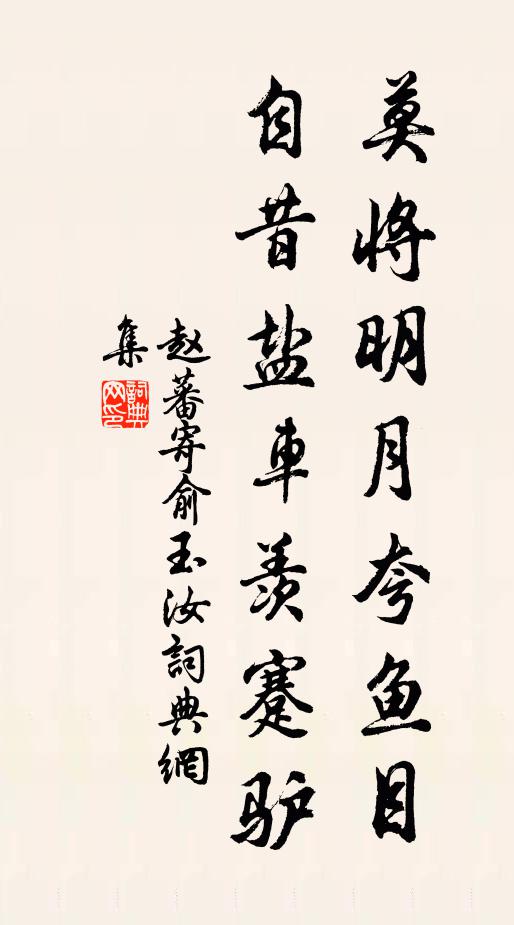 莫将明月夸鱼目
自昔盐车羡蹇驴
赵蕃寄俞玉汝詞典網
集
詞典
网印